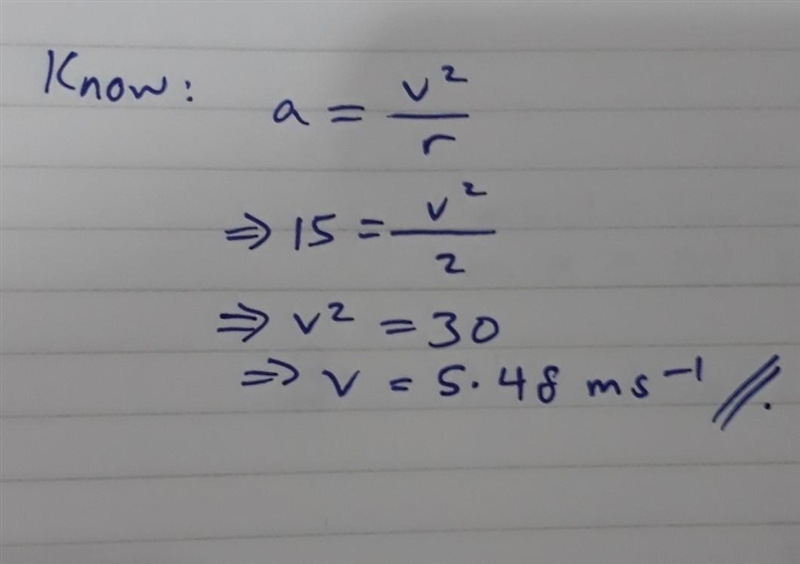 Know: a = v²/r
⇒ 15 = v²/2
⇒ v² = 30
⇒ v = 5.48 ms⁻¹ //.